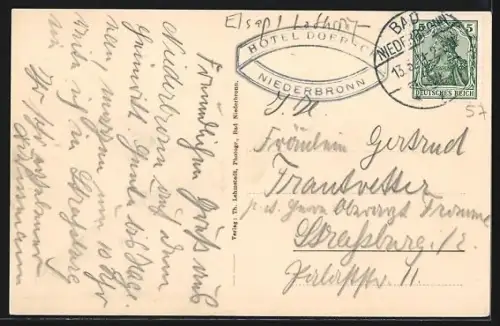 Elsaß Lothr.
HOTEL DOEPFFER
NIEDERBRONN
BAD
NIEDERBRONN
13.
5
DEUTSCHES REICH
57
Freundlichen Gruß aus
Niederbronn auf dem
Heimritt. Heute bis
morgen um 10 Uhr
bin ich in Straßburg
Ihr sehr ergebener
Verlag: Th. Lehmstedt, Photogr., Bad Niederbronn.
Fräulein Gertrud
Trautvetter
p. a. Herrn Oberarzt
Straßburg i/E.
11